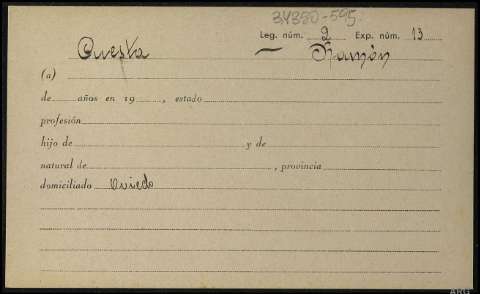 34380-595.
Leg. núm. 2 Exp. núm. 13
Cuesta — Ramón
(a)
de años en 19 , estado
profesión
hijo de y de
natural de , provincia
domiciliado Oviedo
ARG